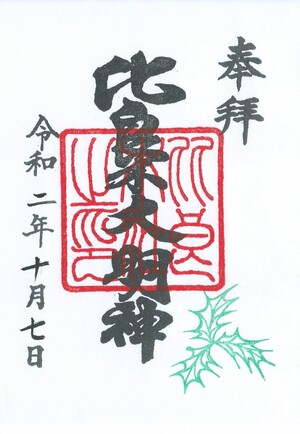 奉拝
比枲大明神
令和二年十月七日